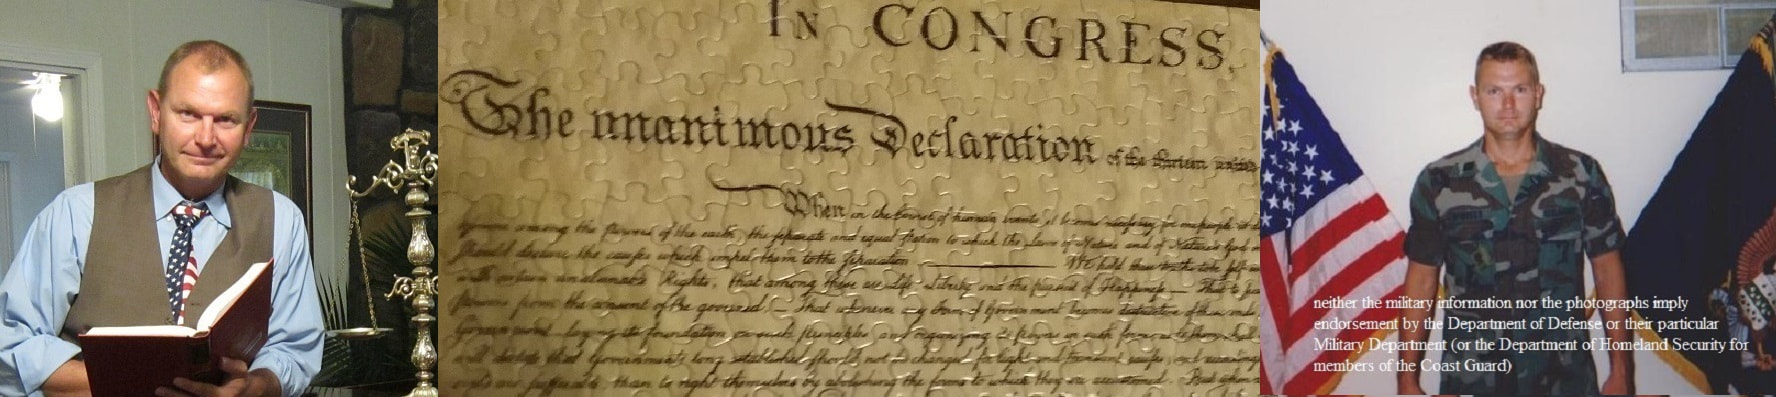 IN CONGRESS,
The unanimous Declaration of the thirteen united
When in the Course of human events, it becomes necessary for one people to
among the powers of the earth, the separate and equal station to which the Laws of Nature and of Nature's God
should declare the causes which impel them to the separation. We hold these truths to be self-
Rights, that among these are Life, Liberty and the pursuit of Happiness
powers from the consent of the governed, That whenever any Form of Government becomes destructive of these
Government, laying its foundation on such principles and organizing its powers in such form
dictate that Governments long established should not be changed for light and transient causes
than to right themselves by abolishing the forms to which they are accustomed. But when
neither the military information nor the photographs imply
endorsement by the Department of Defense or their particular
Military Department (or the Department of Homeland Security for
members of the Coast Guard)